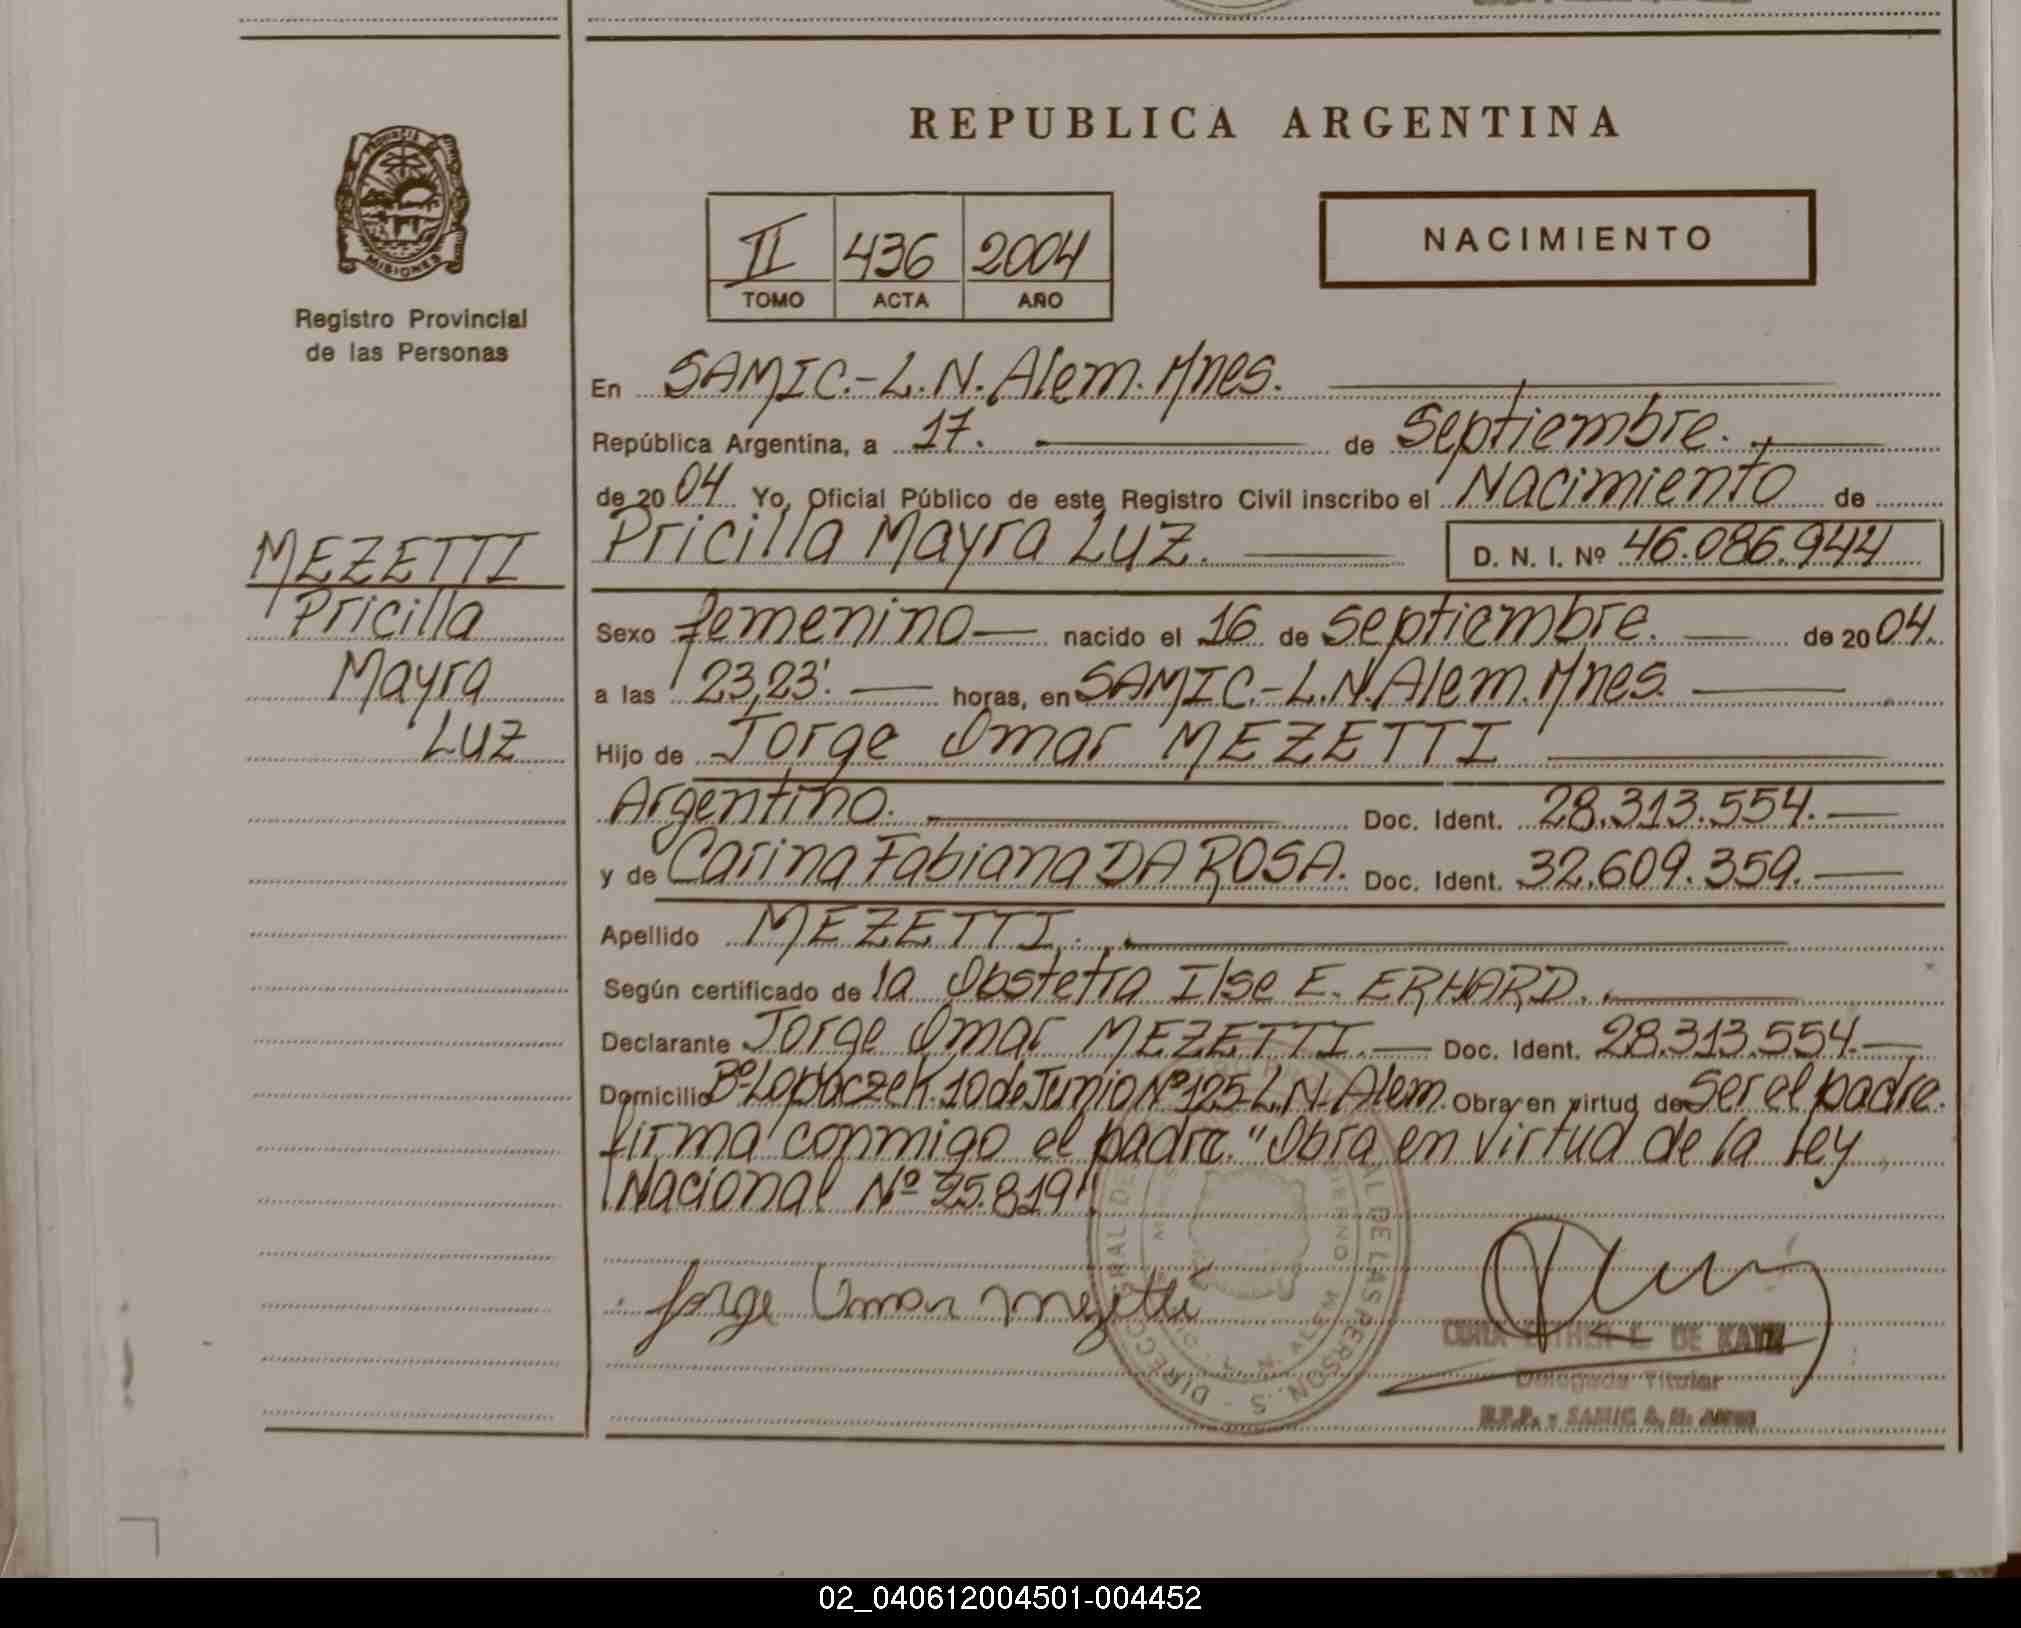 REPUBLICA ARGENTINA
PROVINCIA DE
MISIONES
Registro Provincial
de las Personas
II 436 2004
TOMO ACTA AÑO
NACIMIENTO
En SAMIC.-L.N.Alem.Mnes.
República Argentina, a 17. de Septiembre.
de 2004 Yo, Oficial Público de este Registro Civil inscribo el Nacimiento de
Pricilla Mayra Luz. D. N. I. Nº 46.086.944
MEZETTI
Pricilla
Mayra
Luz
Sexo femenino nacido el 16 de Septiembre. de 2004.
a las 23,23'. horas, en SAMIC.-L.N.Alem.Mnes.
Hijo de Jorge Omar MEZETTI
Argentino. Doc. Ident. 28.313.554.
y de Carina Fabiana DA ROSA. Doc. Ident. 32.609.359.
Apellido MEZETTI.
Según certificado de la Obstetra Ilse E. ERHARD.
Declarante Jorge Omar MEZETTI. Doc. Ident. 28.313.554.
Domicilio Bº Lopaczek.10 de Junio Nº125-L.N.Alem. Obra en virtud de Ser el padre.
firma conmigo el padre. "Obra en virtud de la Ley
Nacional Nº 25.819"
Jorge Omar Mezetti
DE LAS PERSON S
L. N. ALEM
DE KATZ
Delegada Titular
R.P.P. - SAMIC
02_040612004501-004452